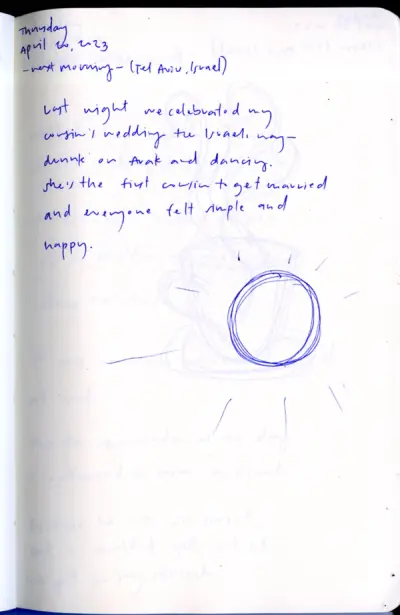 Thursday
April 20, 2023
- next morning - (Tel Aviv, Israel)
Last night we celebrated my
cousin's wedding the Israeli way-
drunk on Arak and dancing.
she's the first cousin to get married
and everyone felt simple and
happy.